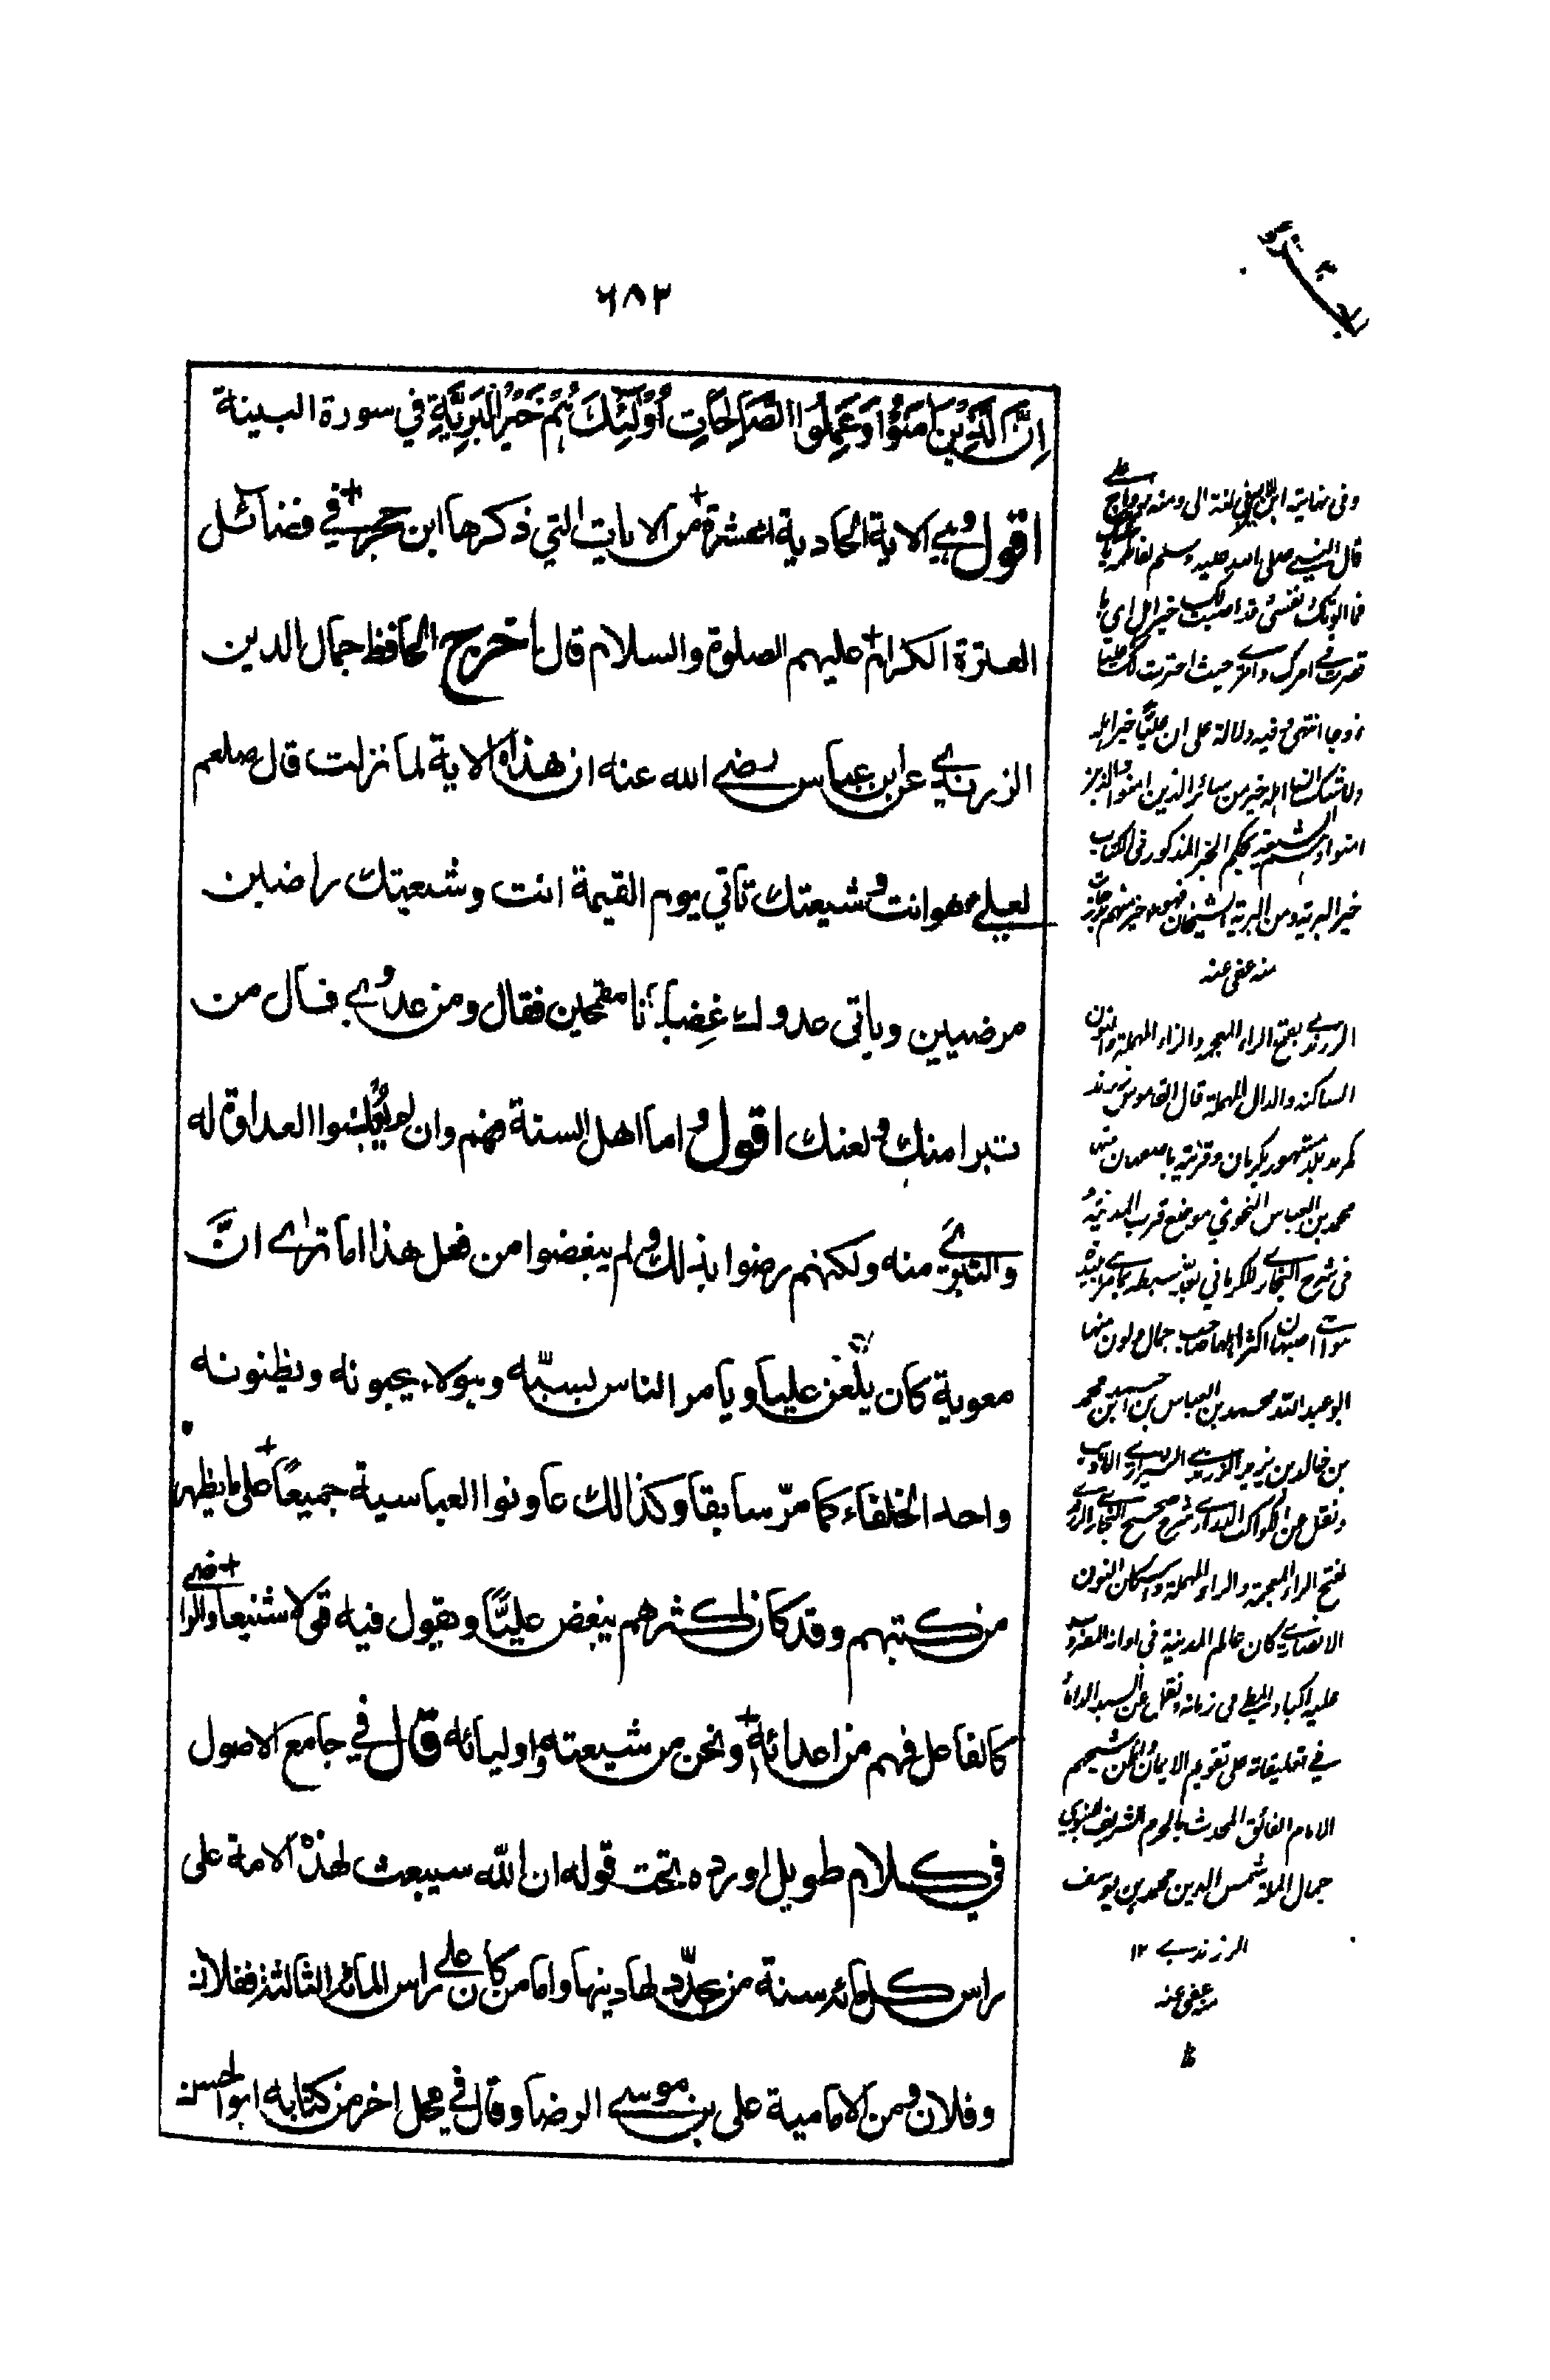 ٦٨٢
اِنَّ الَّذِيْنَ اٰمَنُوْا وَعَمِلُوا الصَّالِحَاتِ اُوْلٰٓئِكَ هُمْ خَيْرُ الْبَرِيَّةِ في سورة البينة
اقول وهي الاية الحادية العشرة من الايات التي ذكرها ابن حجر في فضائل
العترة الكرام عليهم الصلوة والسلام قال اخرج الحافظ جمال الدين
الزرندي عن ابن عباس رضي الله عنه ان هذه الاية لما نزلت قال صلعم
لعلي هو انت وشيعتك تاتي يوم القيمة انت وشيعتك راضين
مرضيين وياتى عدوك غِضابا مقمحين فقال ومن عدوي قال من
تبرا منك ولعنك اقول واما اهل السنة فهم وان لم يعلنوا العداوة له
والتبري منه ولكنهم رضوا بذلك ولم يبغضوا من فعل هذا اما ترى انَّ
معوية كان يلعن عليا ويامر الناس بسبّه وهولاء يحبونه ويظنونه
واحد الخلفاء كما مرّ سابقا وكذالك عاونوا العباسية جميعًا على ما يظهر
من كتبهم وقد كان اكثرهم يبغض عليًّا ويقول فيه قولا شنيعا والراضي
كالفاعل فهم من اعدائه ونحن من شيعته واوليائه قال في جامع الاصول
في كلام طويل اورده تحت قوله ان الله سيبعث لهذه الامة على
راس كل مائة سنة من يجدّد لها دينها واما من كان على راس المائة الثالثة ففلان
وفلان ومن الامامية على بن موسى الرضا وقال في محل اخر من كتابه ابو الحسن
قال النبي صلى الله عليه وسلم لفاطمة
زوجا انتهى وفيه دلالة على ان عليًّا خير
ولا شك خير من سائر الذين امنوا
امنوا بحكم الخبر المذكور في الكتاب
خير البرية ومن البرية الشيخان فهو خير منهم
منه عفى عنه
الزرندي بفتح الزاء المعجمة والراء المهملة والنون
الساكنه والدال المهملة قال القاموس زرند
كمرند بلد مشهور بكرمان وقرية باصبهان منها
محمد بن العباس النحوي موضع قرب المدينة و
في شرح البخاري للكرماني
ابو عبد الله محمد بن العباس بن احمد بن محمد
بن خالد بن يزيد
ونقل عن الكواكب الدراري شرح صحيح البخاري
بفتح الزاء المعجمة والراء المهملة واسكان النون
الانصاري كان عالم المدينة في
في تعليقاته على تقويم الايمان عن شيخهم
الامام الفائق المحدث بالحرم الشريف النبوي
جمال الملة شمس الدين محمد بن يوسف
الزرندي ١٢
منه عفى عنه